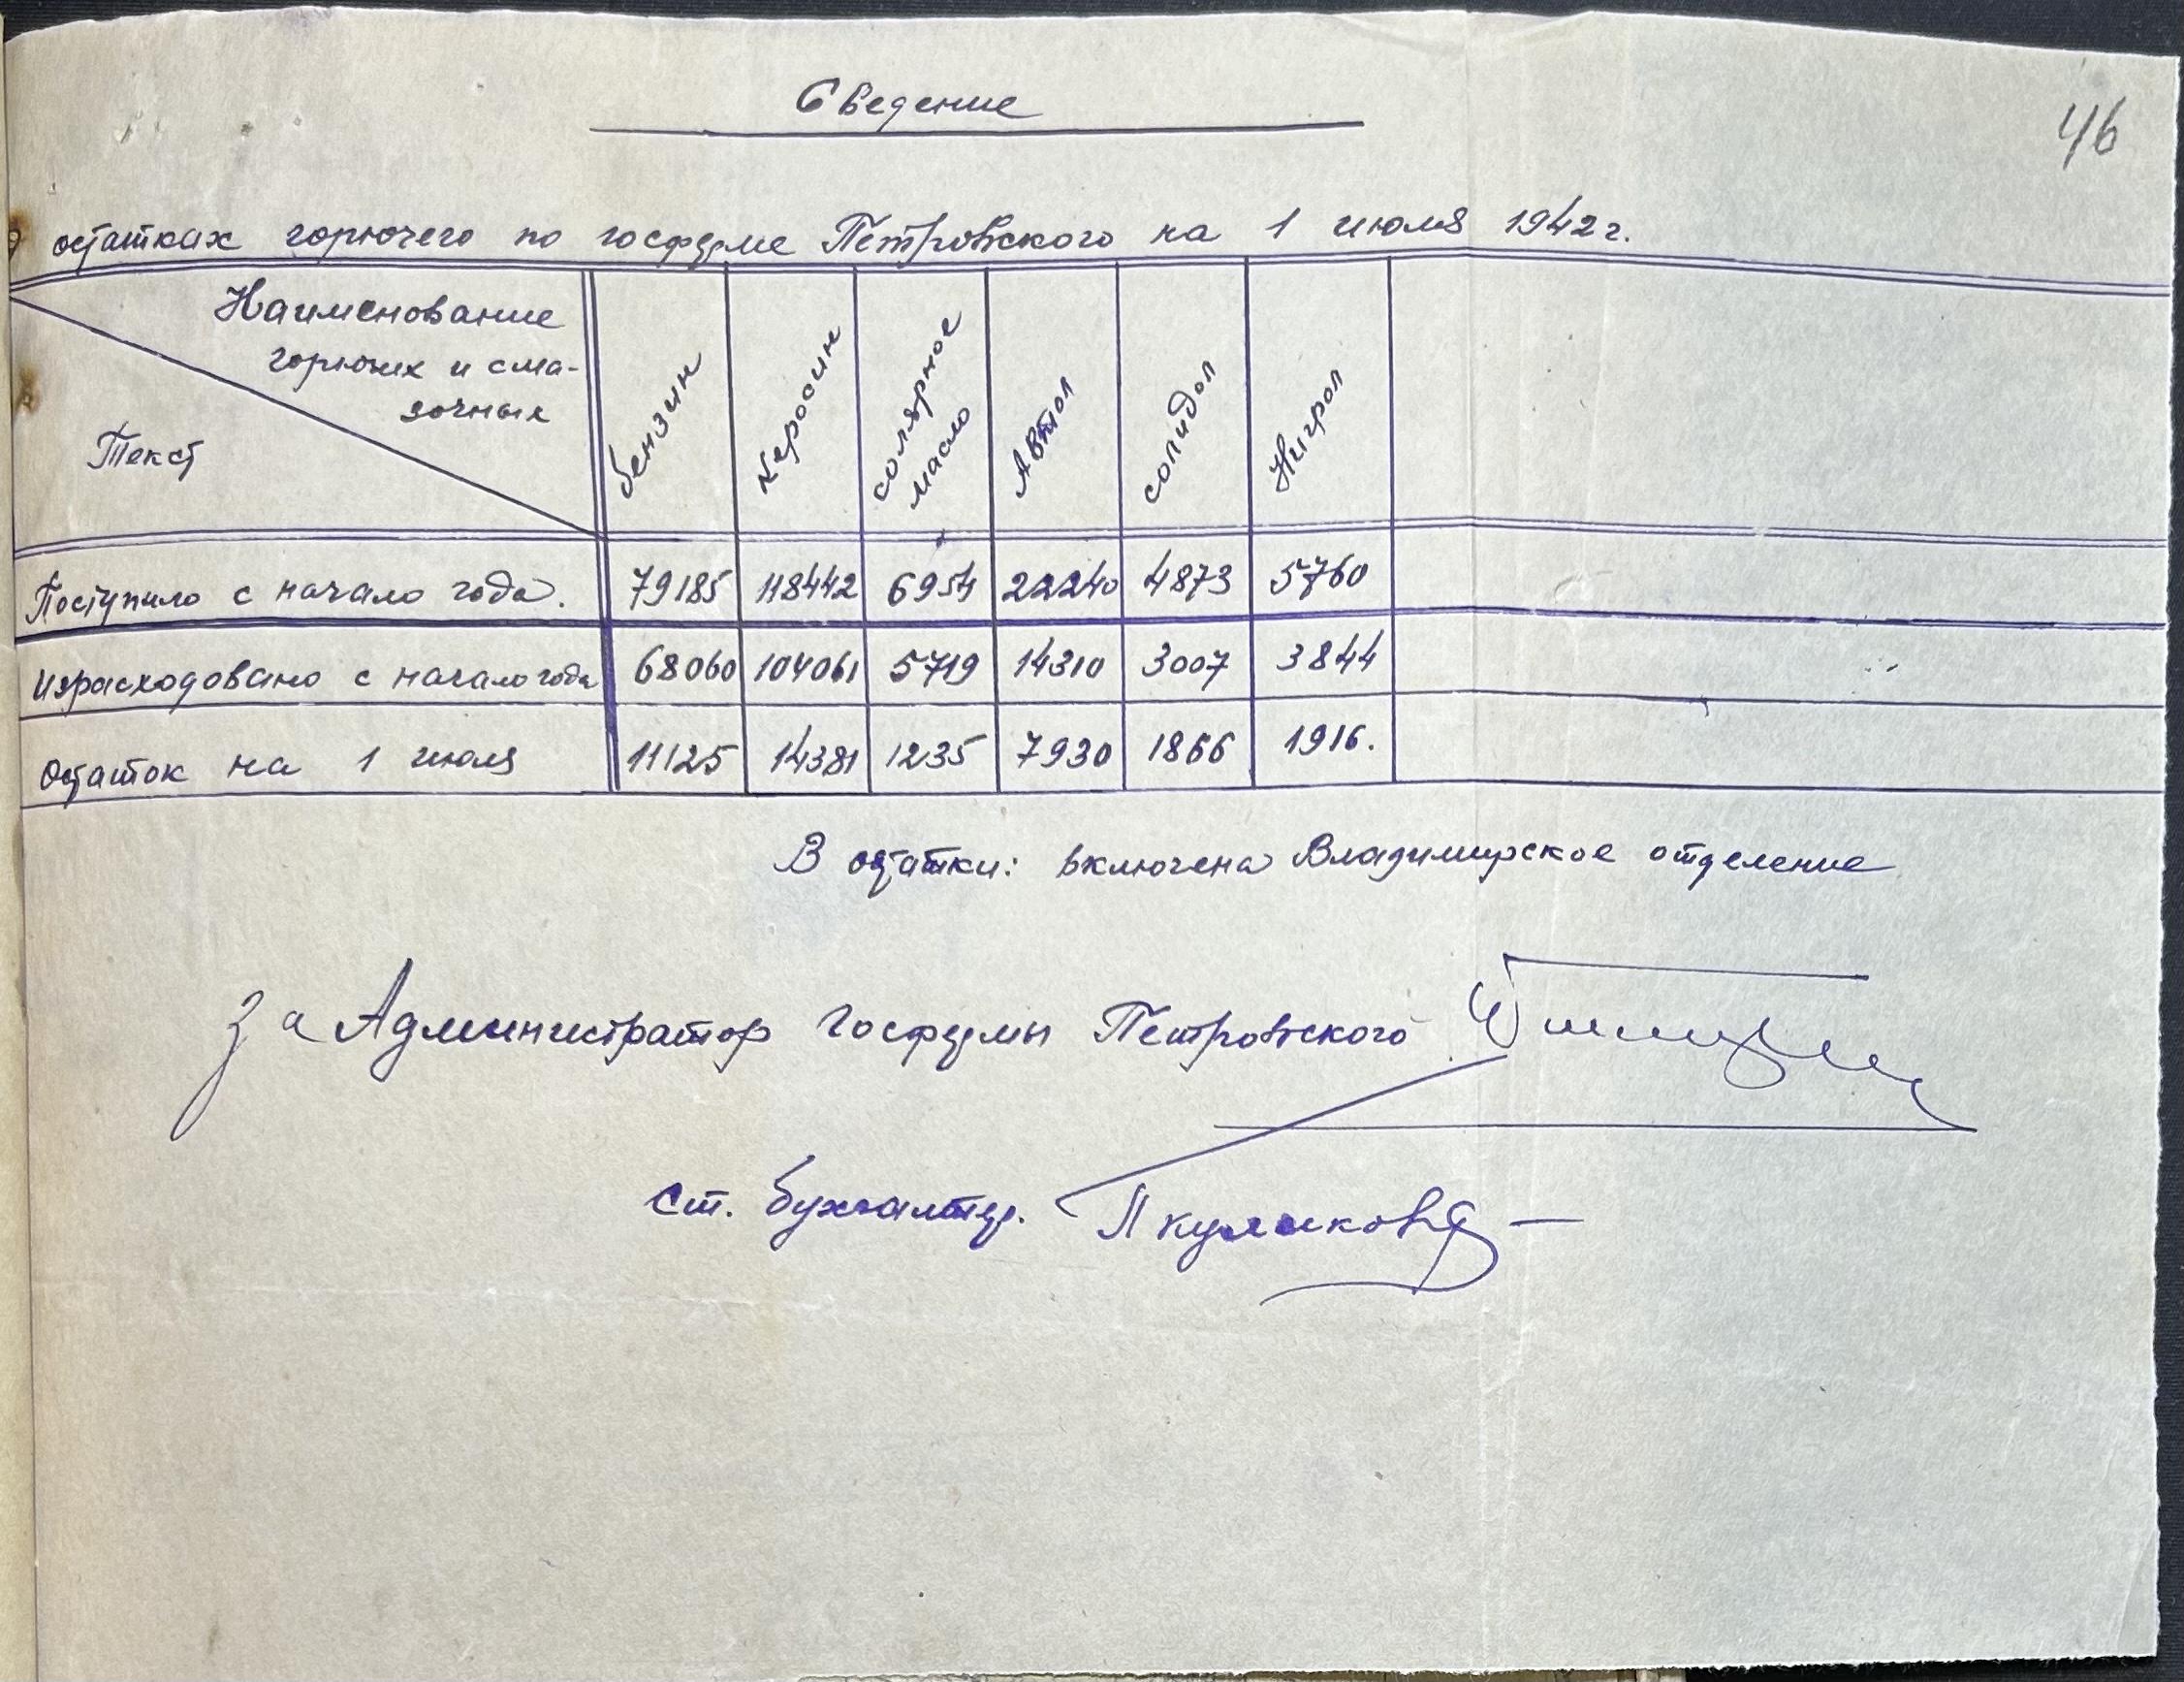 Сведение
46
о остатках горючего по госферме Петровского на 1 июля 1942 г.
Наименование
горючих и сма-
зочных
Текст
бензин
керосин
солярное
масло
Автол
солидол
Нигрол
Поступило с начало года. 79185 118442 6954 22240 4873 5760
израсходовано с начало года 68060 104061 5719 14310 3007 3844
Остаток на 1 июля 11125 14381 1235 7930 1866 1916.
В остатки: включена Владимирское отделение
За Администратор Госфермы Петровского
ст. бухгалтер. Куликова